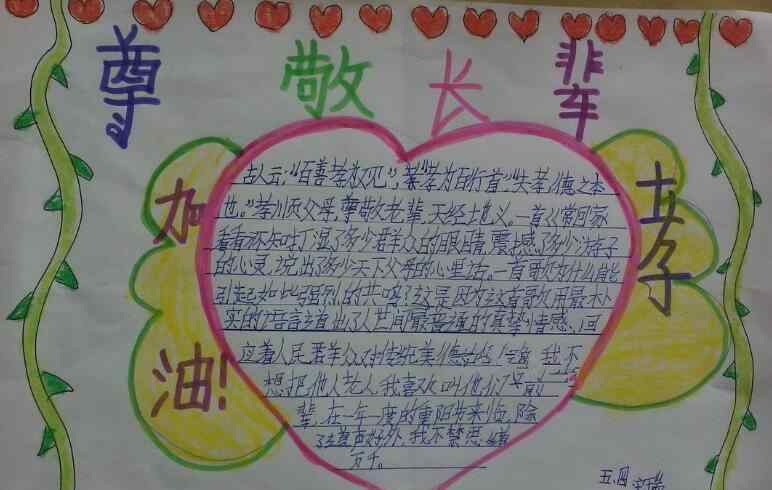 尊敬长辈
加油！
孝
古人云："百善孝为见",孝为百行首,"夫孝,德之本
也。"孝川页父母,尊敬老辈,天经土也义。一首《常回家
看看不知吐丁湿了多少君羊众的眼睛,震撼了多少游子
的心灵,说出了多少天下父母的心里话,一首歌为什么能
引起如此强烈的共鸣？这是因为这首歌用最朴
实的语言道出了人世间最普通的真挚情感,回
应着人民君羊众对传统美德的 我不
想把他人老人,我喜欢叫他们 前
辈,在一年一度的重阳节来临,除
道声好外,我不禁思绪
万千。
五.四